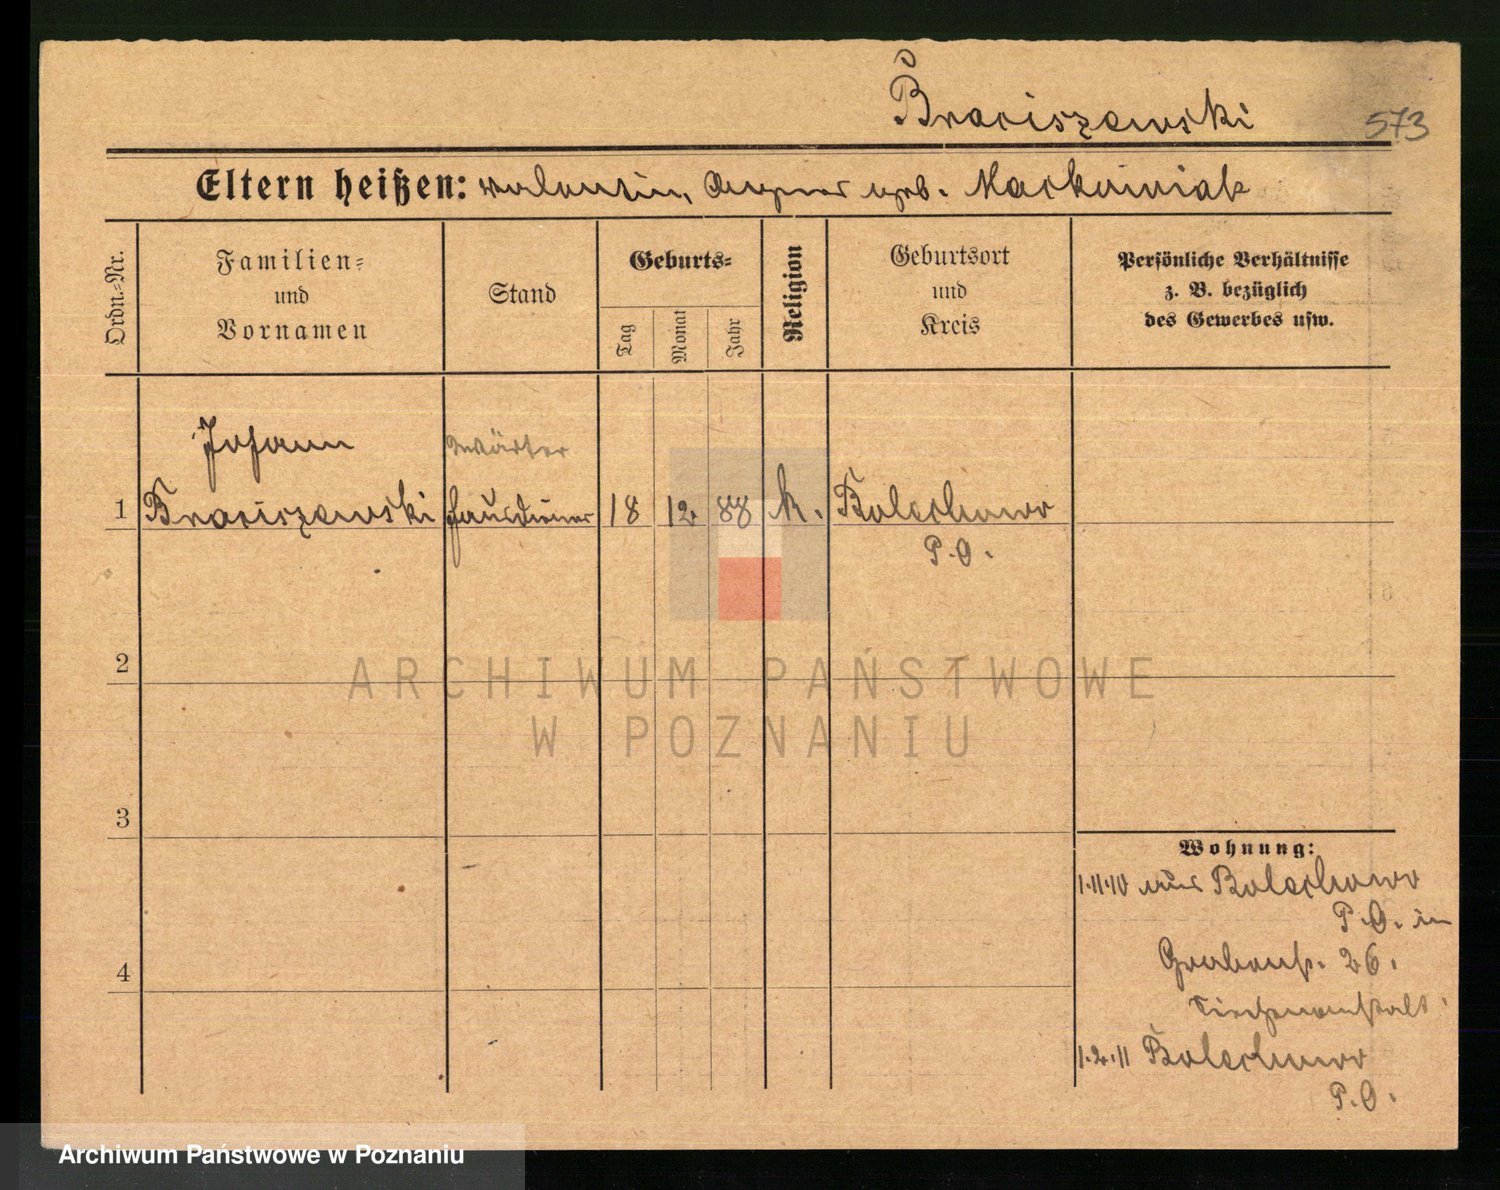 Braciszewski
573
Eltern heißen: Valentin, Agnes geb. Maćkowiak
Ordn.=Nr.
Familien=
und
Vornamen
Stand
Geburts=
Tag
Monat
Jahr
Religion
Geburtsort
und
Kreis
Persönliche Verhältnisse
z. B. bezüglich
des Gewerbes usw.
Johann
Wärter
1 Braciszewski Hausdiener 18 12 88 k. Bolechowo
P. O.
2
ARCHIWUM PAŃSTWOWE
W POZNANIU
3
Wohnung:
1.11.10 aus Bolechowo
P. O. in
Grabenstr. 26.
4
1.2.11 Bolechowo
P. O.
Archiwum Państwowe w Poznaniu